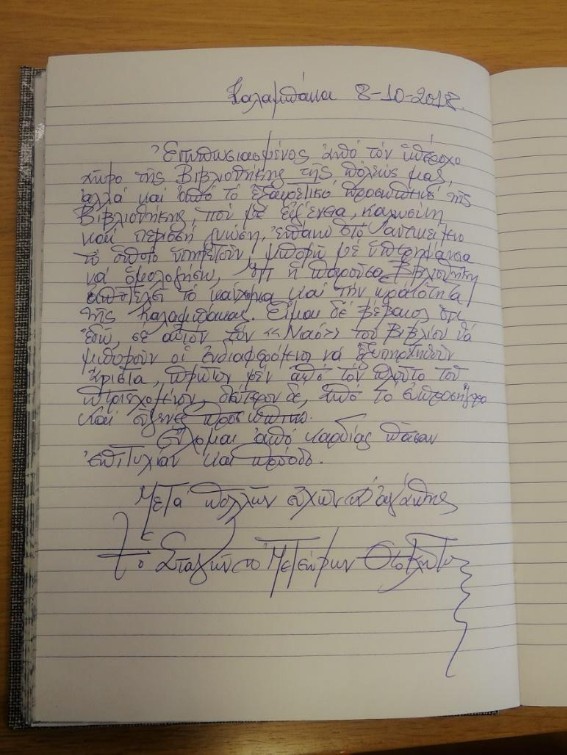 Καλαμπάκα 8-10-2018.
Ἐντυπωσιασμένος ἀπό τόν ὑπέροχο
χῶρο τῆς Βιβλιοθήκης τῆς πόλεώς μας,
ἀλλά καί ἀπό τό ἐξαιρετικό προσωπικό τῆς
Βιβλιοθήκης πού μέ εὐγένεια, καλωσύνη
καί περισσή γνώση, ἐπάνω στό ἀντικείμενο
τό ὁποῖο ὑπηρετοῦν, μπορῶ μέ ὑπερηφάνεια
νά ὁμολογήσω, ὅτι ἡ παροῦσα Βιβλιοθήκη
ἀποτελεῖ τό καύχημα καί τήν ὡραιότητα
τῆς Καλαμπάκας. Εἶμαι δέ βέβαιος ὅτι
ἐδῶ, σέ αὐτόν τόν «Ναό» τοῦ Βιβλίου θά
μποροῦν οἱ ἐνδιαφερόμενοι νά ἐξυπηρετηθοῦν
ἄριστα, πρῶτον μέν ἀπό τόν πλοῦτο τοῦ
περιεχομένου, δεύτερον δέ, ἀπό τό εὐπροσήγορο
καί εὐγενές προσωπικό.
Εὔχομαι ἀπό καρδίας πᾶσαν
ἐπιτυχίαν καί πρόοδο.
Μετά πολλῶν εὐχῶν καί ἀγάπης
† ὁ Σταγῶν καί Μετεώρων Θεόκλητος